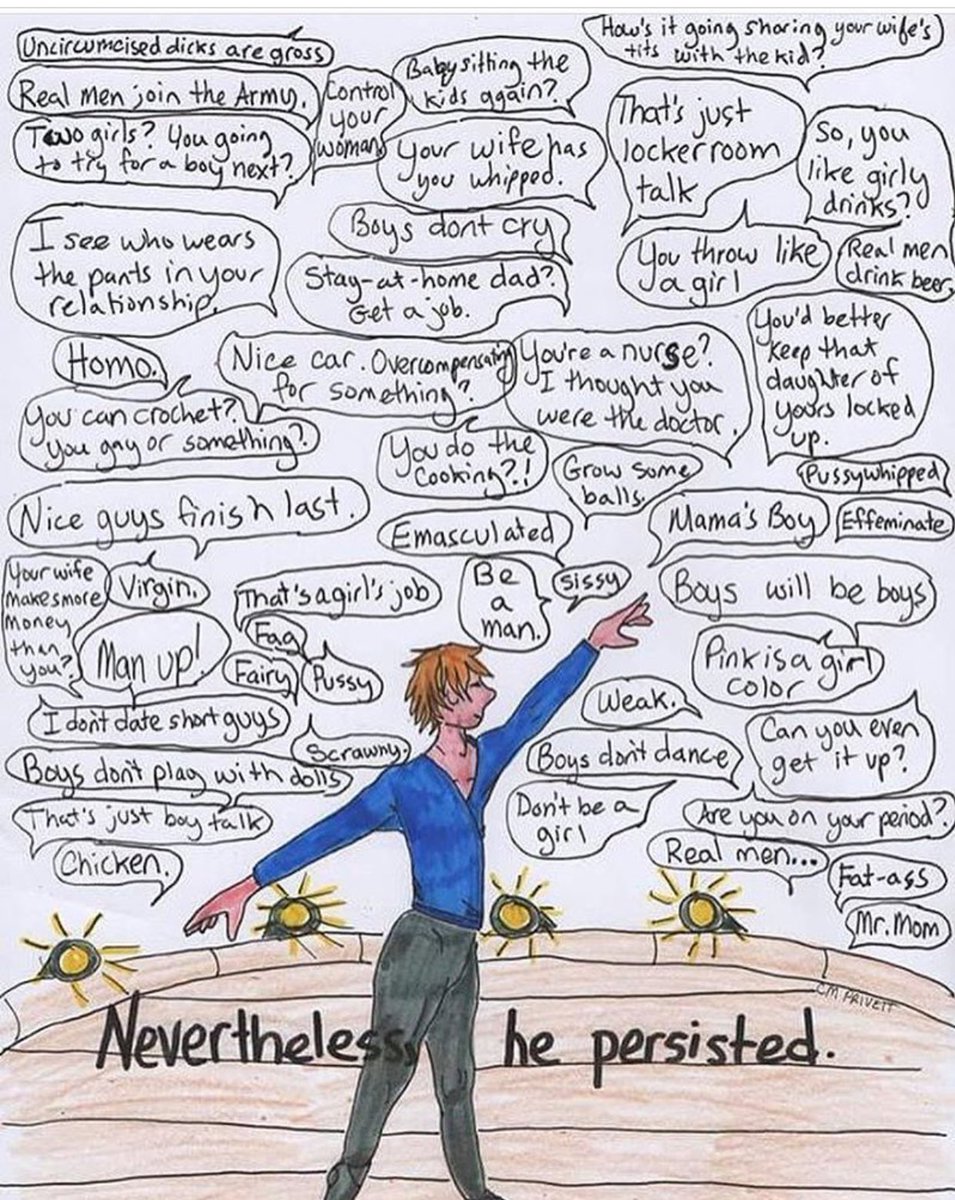 Uncircumcised dicks are gross
How's it going sharing your wife's
tits with the kid?
Real Men join the Army.
Control
your
woman
Babysitting the
kids again?
That's just
lockerroom
talk
So, you
like girly
drinks?
Two girls? You going
to try for a boy next?
Your wife has
you whipped.
I see who wears
the pants in your
relationship.
Boys dont cry
You throw like
a girl
Real men
drink beer.
Stay-at-home dad?
Get a job.
Homo.
Nice car. Overcompensating
for something?
You're a nurse?
I thought you
were the doctor.
You'd better
keep that
daughter of
yours locked
up.
You can crochet?
You gay or something?
You do the
cooking?!
Grow some
balls.
Pussywhipped
Nice guys finish last.
Emasculated
Mama's Boy
Effeminate
Your wife
makes more
money
than
you?
Virgin.
That's a girl's job
Be
a
man.
sissy
Boys will be boys
Man up!
Fag
Fairy
Pussy
Pink is a girl
color
I don't date short guys
Scrawny.
Weak.
Can you even
get it up?
Boys don't play with dolls
Boys don't dance
That's just boy talk
Don't be a
girl
Are you on your period?
Chicken.
Real men...
Fat-ass
Mr. Mom
CM PRIVETT
Nevertheless, he persisted.